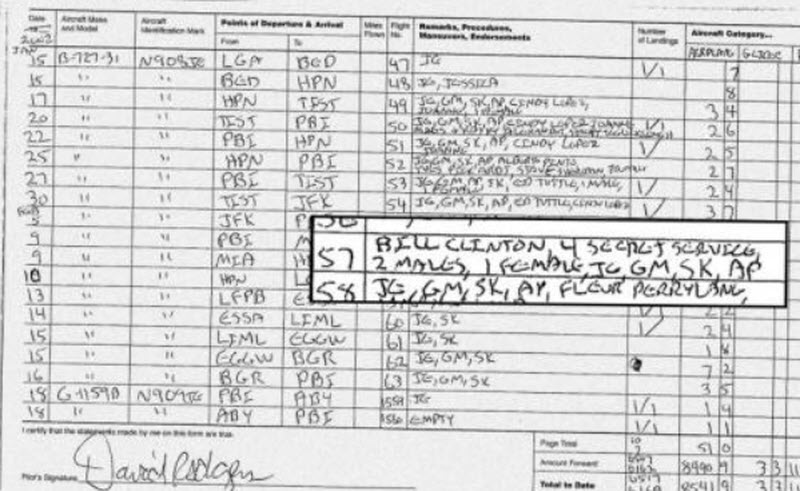 Date
Aircraft Make and Model
Aircraft Identification Mark
Points of Departure & Arrival
From
To
Miles Flown
Flight No.
Remarks, Procedures, Maneuvers, Endorsements
Number of Landings
Aircraft Category...
AIRPLANE
2002
JAN
15 B-727-31 N908JE LGA BED 47 JE 1/1 7
15 " " BED HPN 48 JE, JESSICA 8
17 " " HPN TIST 49 JE, GM, SK, AP, CINDY LOPEZ, 3 4
20 " " TIST PBI 50 JE, GM, SK, AP, CINDY LOPEZ 1/ 2 6
22 " " PBI HPN 51 JE, GM, SK, AP, CINDY LOPEZ 1/ 2 5
25 " " HPN PBI 52 JE, GM, SK, AP 2 7
27 " " PBI TIST 53 JE, GM, AP, SK, ED TUTTLE, 1 MALE, 1/ 2 4
1 FEMALE
30 " " TIST JFK 54 JE, GM, SK, AP, ED TUTTLE, 1/ 3 7
5 " " JFK P
9 " " PBI M
9 " " MIA H
10 " " HPN
57 BILL CLINTON, 4 SECRET SERVICE,
2 MALES, 1 FEMALE, JE, GM, SK, AP
58 JE, GM, SK, AP, FLEUR PERRYLANG,
13 " " LFPB
14 " " ESSA LIML 60 JE, SK 1/ 2 4
15 " " LIML EGGW 61 JE, SK 1 8
15 " " EGGW BGR 62 JE, GM, SK 7 2
16 " " BGR PBI 63 JE, GM, SK 3 5
18 G-1159B N909JE PBI ABY JE 1/1 1 4
18 " " ABY PBI EMPTY 1/1 1 1
I certify that the statements made by me on this form are true.
Pilot's Signature David Rodgers
Page Total 51 0
Amount Forward 8490 9 3 3 11
Total to Date 8541 9 3 3 11